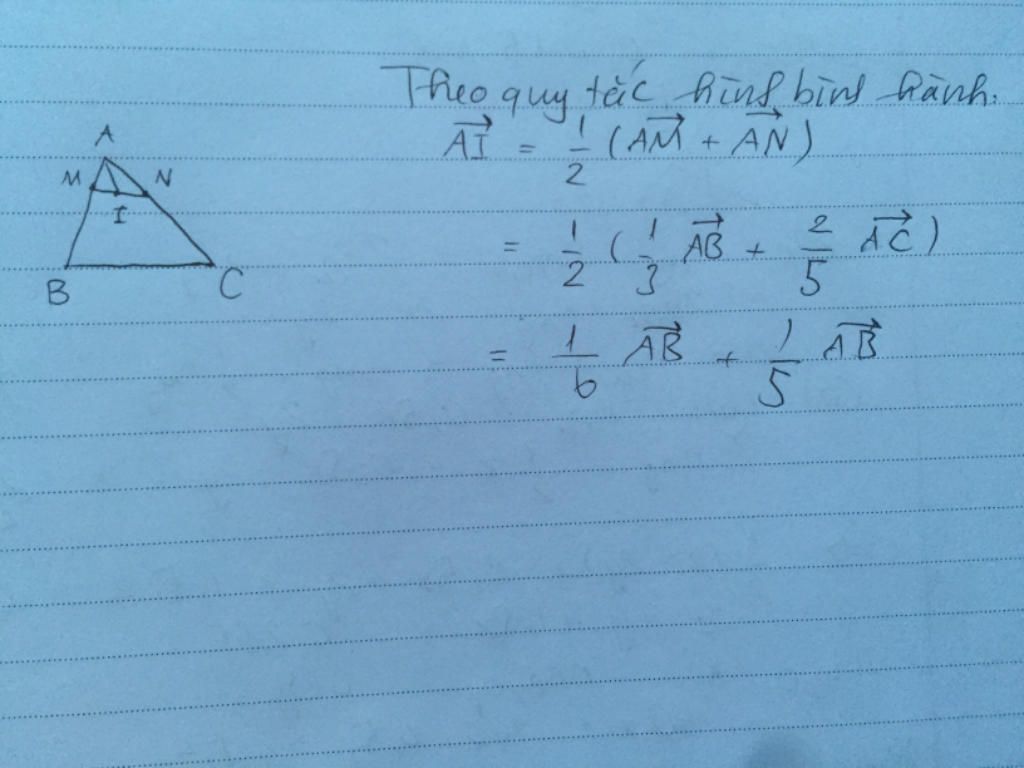 Theo quy tắc hình bình hành.
A
M N
I
B C
$\overrightarrow{AI} = \frac{1}{2} (\overrightarrow{AM} + \overrightarrow{AN})$
$= \frac{1}{2} (\frac{1}{3} \overrightarrow{AB} + \frac{2}{5} \overrightarrow{AC})$
$= \frac{1}{6} \overrightarrow{AB} + \frac{1}{5} \overrightarrow{AB}$